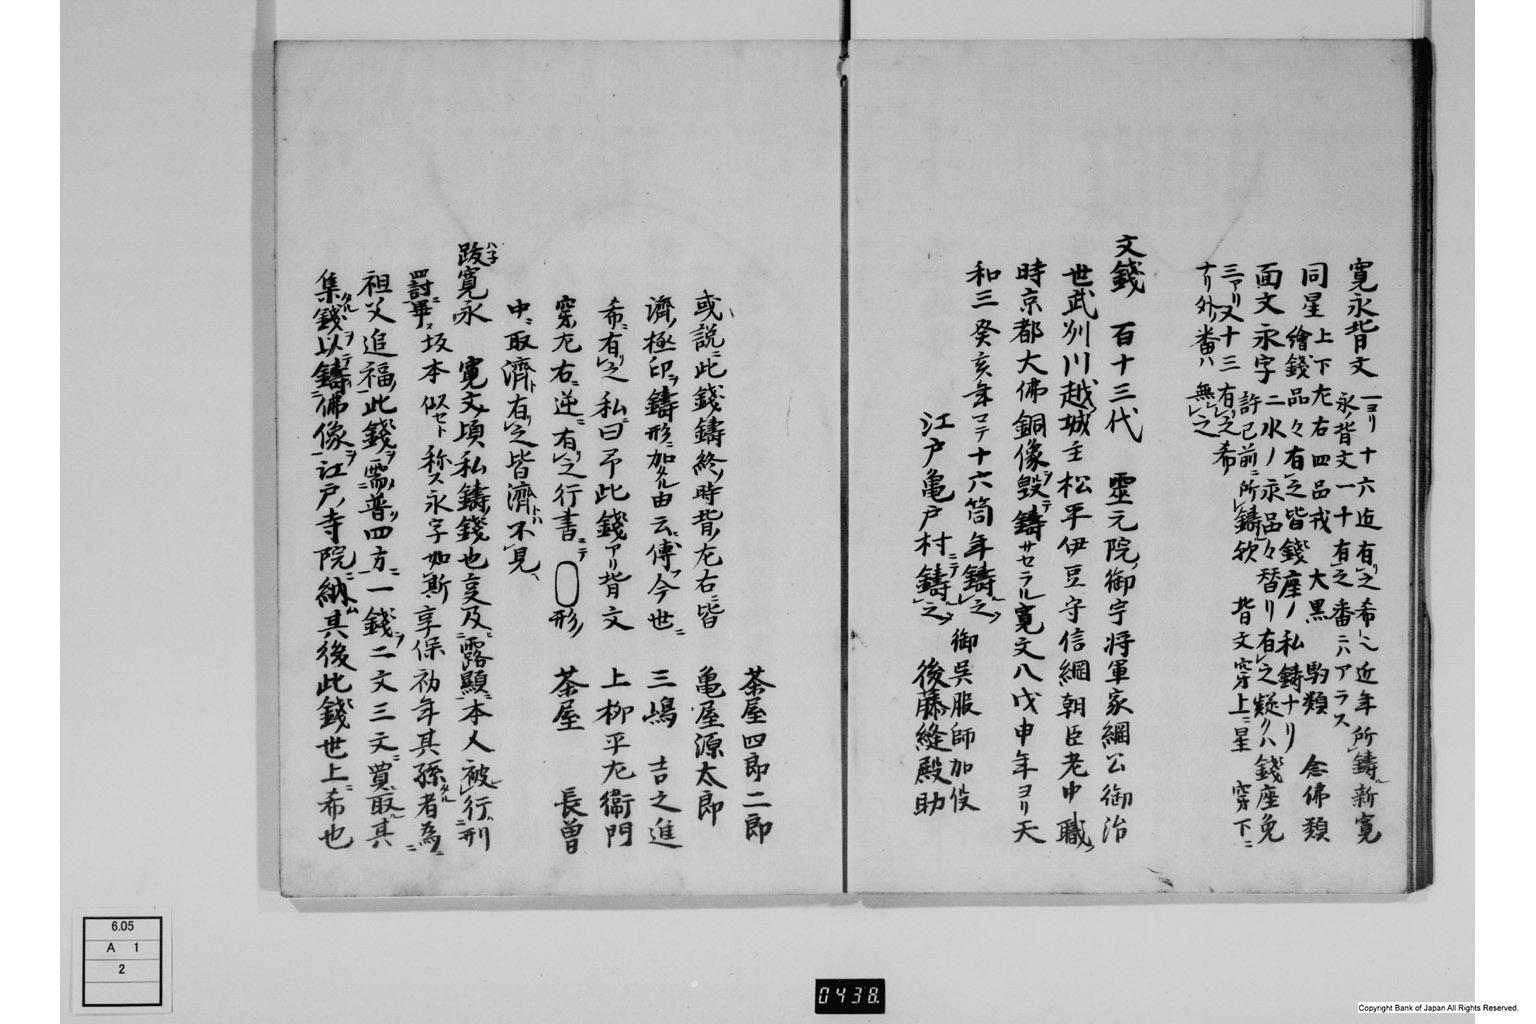 寛永背文 一ヨリ十六迠有之希ト云近年所鋳新寛
永ノ背文一十有之番ニハアラス
同星 上下左右四品戎 大黒 駒類 念佛類
繪錢品々有之皆錢座ノ私鋳ナリ
面文永字二水ノ永品々替リ有之疑クハ錢座免
許已前ニ所鋳欤 背文穿上ニ星 穿下ニ
三アリ又十三有之希
ナリ外ノ番ハ無之
文錢 百十三代 靈元院御宇将軍家綱公御治
世武刕川越城主松平伊豆守信綱朝臣老中職
時京都大佛銅像毀テ鋳サセラル寛文八戊申年ヨリ天
和三癸亥年マテ十六箇年鋳之 御呉服師加役
江戸亀戸村ニテ鋳之 後藤縫殿助
茶屋四郎二郎
亀屋源太郎
三嶋 吉之進
上柳平左衛門
茶屋 長曽
或説ニ此錢鋳終ノ時背ノ左右ニ皆
濟ノ極印ヲ鋳形ニ加タル由云傳フ今世ニ
希ニ有之私曰予此錢アリ背文
穿左右ニ逆ニ有之行書ニテ 形ノ
中ニ取濟ト有之皆濟トハ不見
跋寛永 寛文ノ頃私鋳錢也亨及露顯本人被行刑
罰畢ス坂本似セト称ス永字如斯享保初年其孫タル者為ニ
祖父追福此錢ヲ需ニ普ク四方ニ一錢ヲ二文三文ニ買取其
集ル錢ヲ以テ鋳佛像ヲ江戸ノ寺院ニ納ム其後此錢世上ニ希也
6.05
A 1
2
0438.
Copyright Bank of Japan All Rights Reserved.